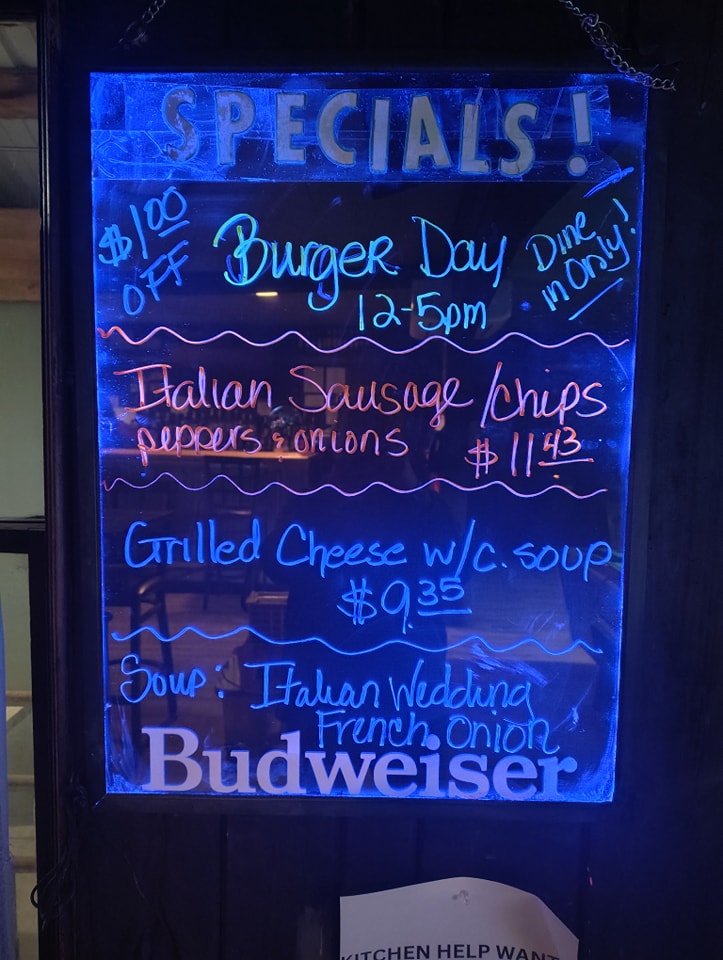 SPECIALS!
$1.00 OFF
Burger Day
12-5pm
Dine
in Only!
Italian Sausage /chips
peppers & onions $11.43
Grilled Cheese w/c. soup
$9.35
Soup: Italian Wedding
French Onion
Budweiser
KITCHEN HELP WANT